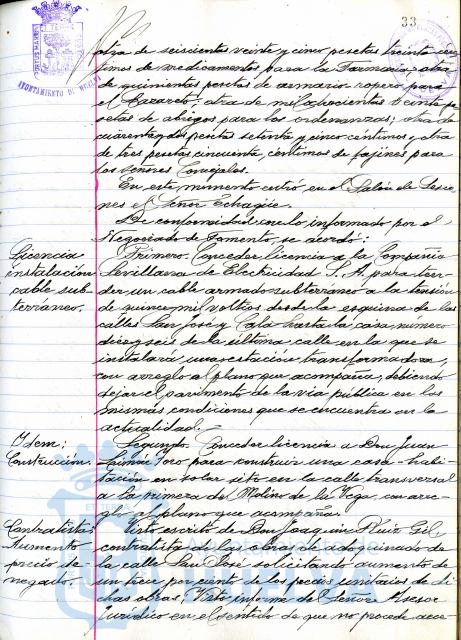 33
AYUNTAMIENTO DE HUELVA
otra de seiscientas veinte y cinco pesetas treinta cén-
timos de medicamentos para la Farmacia; otra
de quinientas pesetas de armario ropero para
el Lazareto; otra de mil ochocientas veinte pe-
setas de abrigos para los ordenanzas; otra de
cuarenta y dos pesetas setenta y cinco céntimos y otra
de tres pesetas cincuenta céntimos de fajines para
los Señores Concejales.
En este momento entró en el Salón de Sesio-
nes el Señor Echagüe.
De conformidad con lo informado por el
Negociado de Fomento, se acordó:
Licencia
instalación
cable sub-
terráneo.
Primero. Conceder licencia a la Compañía
Sevillana de Electricidad S. A. para ten-
der un cable armado subterráneo a la tensión
de quince mil voltios desde la esquina de las
calles San José y Cala hasta la casa número
diez y seis de la última calle en la que se
instalará una estación transformadora,
con arreglo al plano que acompaña, debiendo
dejar el pavimento de la vía pública en las
mismas condiciones que se encuentra en la
actualidad.
Idem:
Construcción.
Segundo. Conceder licencia a Don Juan
para construir una casa-habi-
tación en solar sito en la calle transversal
a la primera de Molino de la Vega, con arre-
glo al plano que acompaña.
Contratista:
Aumento
precio de-
negado.
Visto escrito de Don Joaquín Ruiz Gil,
contratista de las obras de adoquinado de
la calle San José solicitando aumento de
un trece por ciento de los precios unitarios de di-
chas obras. Visto informe del Señor Asesor
Jurídico en el sentido de que no procede acce-